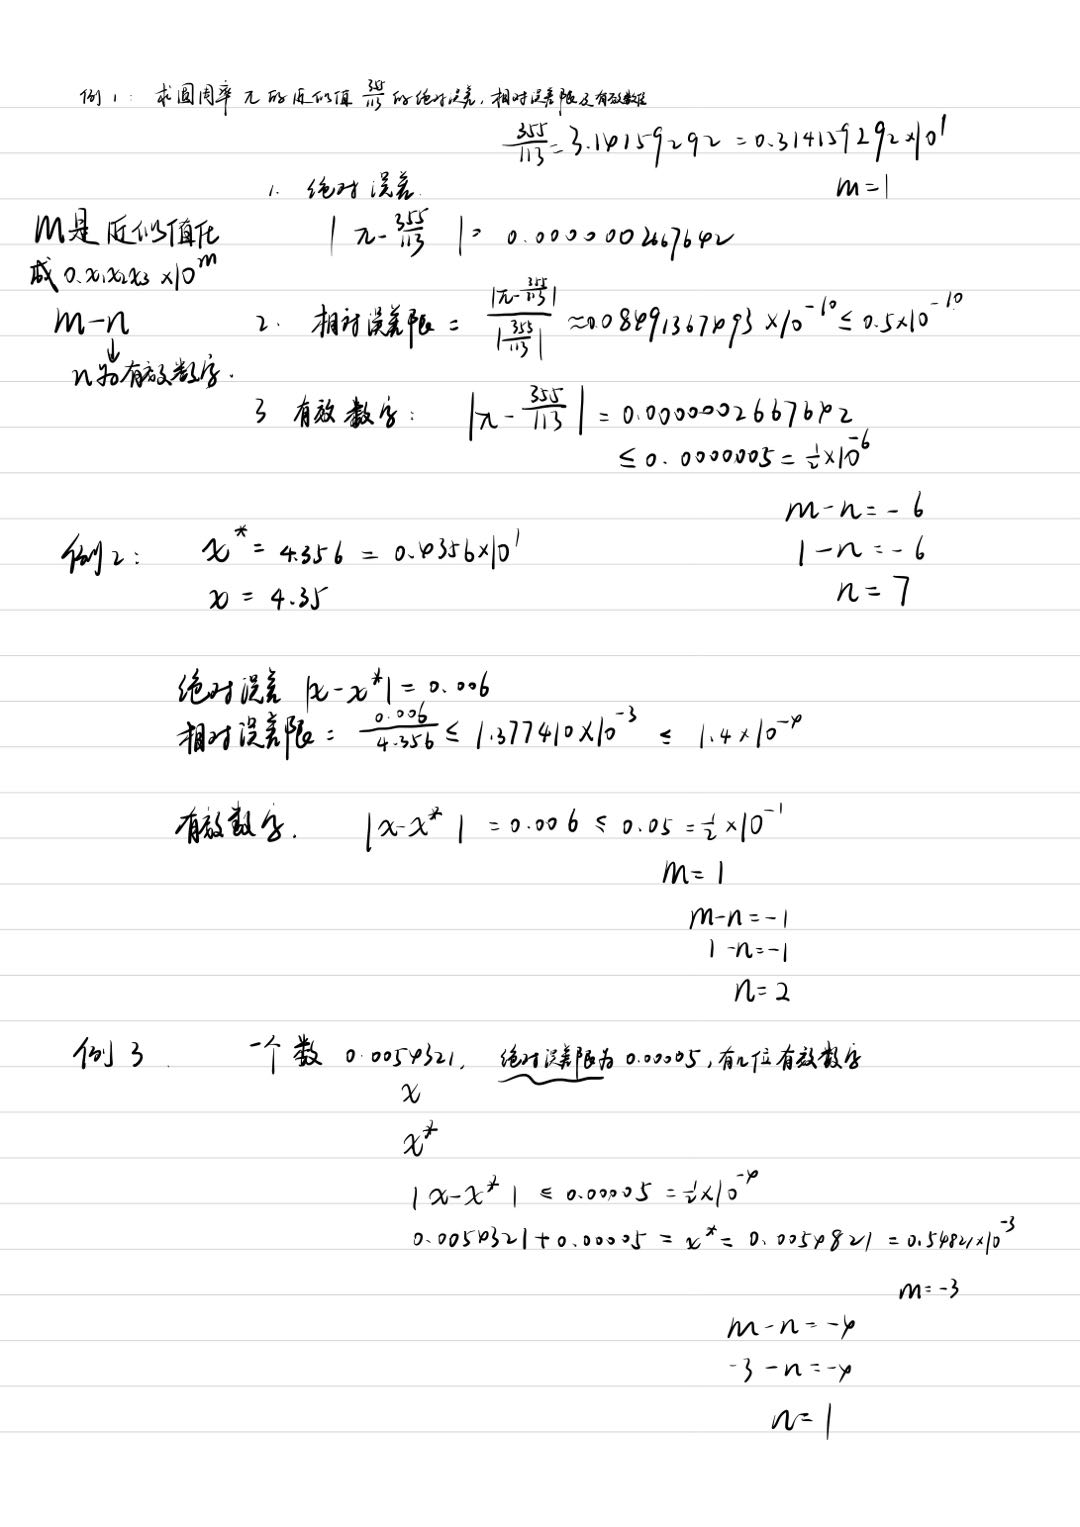 例1: 求圆周率π的近似值 355/113 的绝对误差,相对误差限及有效数位
355/113 = 3.14159292 = 0.314159292×10^1
m=1
1. 绝对误差.
|π-355/113| = 0.0000002667642
m是近似值化
成 0.x1x2x3 ×10^m
m-n
↓
n为有效数字.
2. 相对误差限 = |π-355/113| / |355/113| ≈0.08491367493 ×10^-10 ≤ 0.5×10^-10
3 有效数字: |π-355/113| = 0.0000002667642
≤ 0.0000005 = 1/2×10^-6
m-n=-6
1-n=-6
n=7
例2: x* = 4.356 = 0.4356×10^1
x = 4.35
绝对误差 |x-x*| = 0.006
相对误差限 = 0.006/4.356 ≤ 1.377410×10^-3 ≤ 1.4×10^-4
有效数字. |x-x*| = 0.006 ≤ 0.05 = 1/2×10^-1
m=1
m-n=-1
1-n=-1
n=2
例3. 一个数 0.0054321, 绝对误差限为 0.00005,有几位有效数字
x
x*
|x-x*| ≤ 0.00005 = 1/2×10^-4
0.0054321+0.00005 = x* = 0.0054821 = 0.54821×10^-3
m=-3
m-n=-4
-3-n=-4
n=1